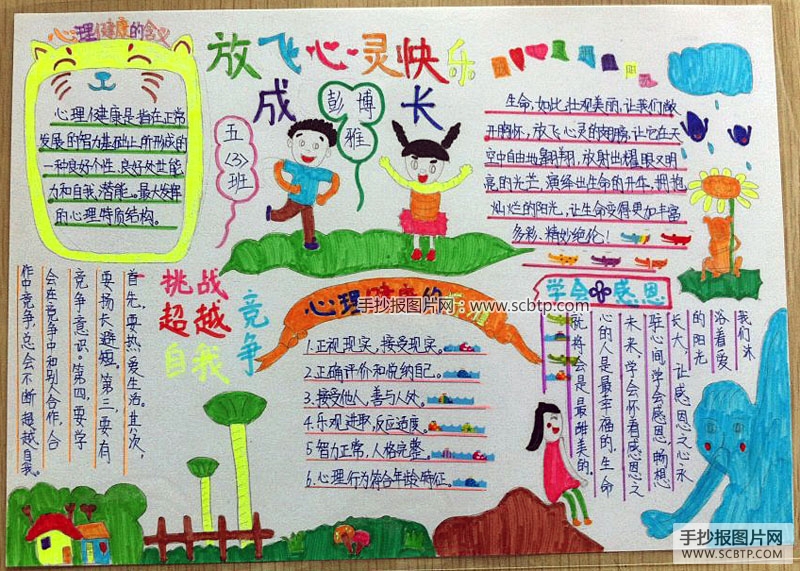 心理健康的含义
心理健康是指在正常
发展的智力基础上所形成的
一种良好个性、良好处世能
力和自我潜能。最大发挥
的心理特质结构。
放飞心灵快乐
成长
五〈3〉班
彭博雅
生命,如此壮观美丽,让我们敞
开胸怀,放飞心灵的翅膀,让它在天
空中自由地翱翔,放射出耀眼又明
亮的光芒,演绎出生命的
灿烂的阳光,让生命变得更加丰富
多彩、精妙绝伦!
挑战
超越
自我
竞争
首先,要热爱生活。其次,
要扬长避短。第三,要有
竞争意识。第四,要学
会在竞争中和别人合作,合
作中竞争,总会不断超越自我。
心理健康的
手抄报图片网:www.scbtp.com
1.正视现实,接受现实。
2.正确评价和悦纳自己。
3.接受他人,善与人处。
4.乐观进取,反应适度。
5.智力正常,人格完整。
6.心理行为符合年龄特征。
学会感恩
我们沐
浴着爱
的阳光
长大,让感恩之心永
驻心间,学会感恩,畅想
未来,学会怀着感恩之
心的人是最幸福的,生命
就将会是最甜美的。
手抄报图片网
WWW.SCBTP.COM